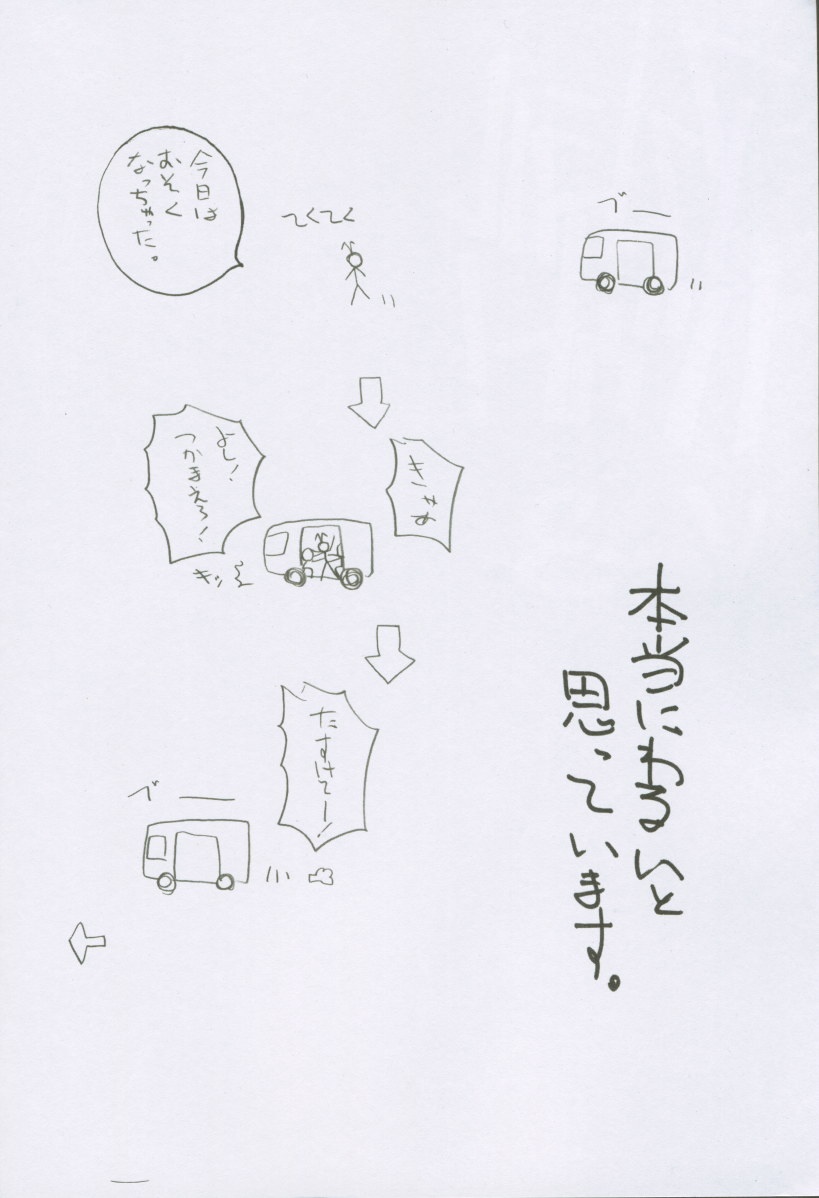 ブー
てくてく
今日は
おそく
なっちゃった。
きゃあ
よし!
つかまえろ!
キッ
たすけてー!
ブー
本当にわるいと
思っています。